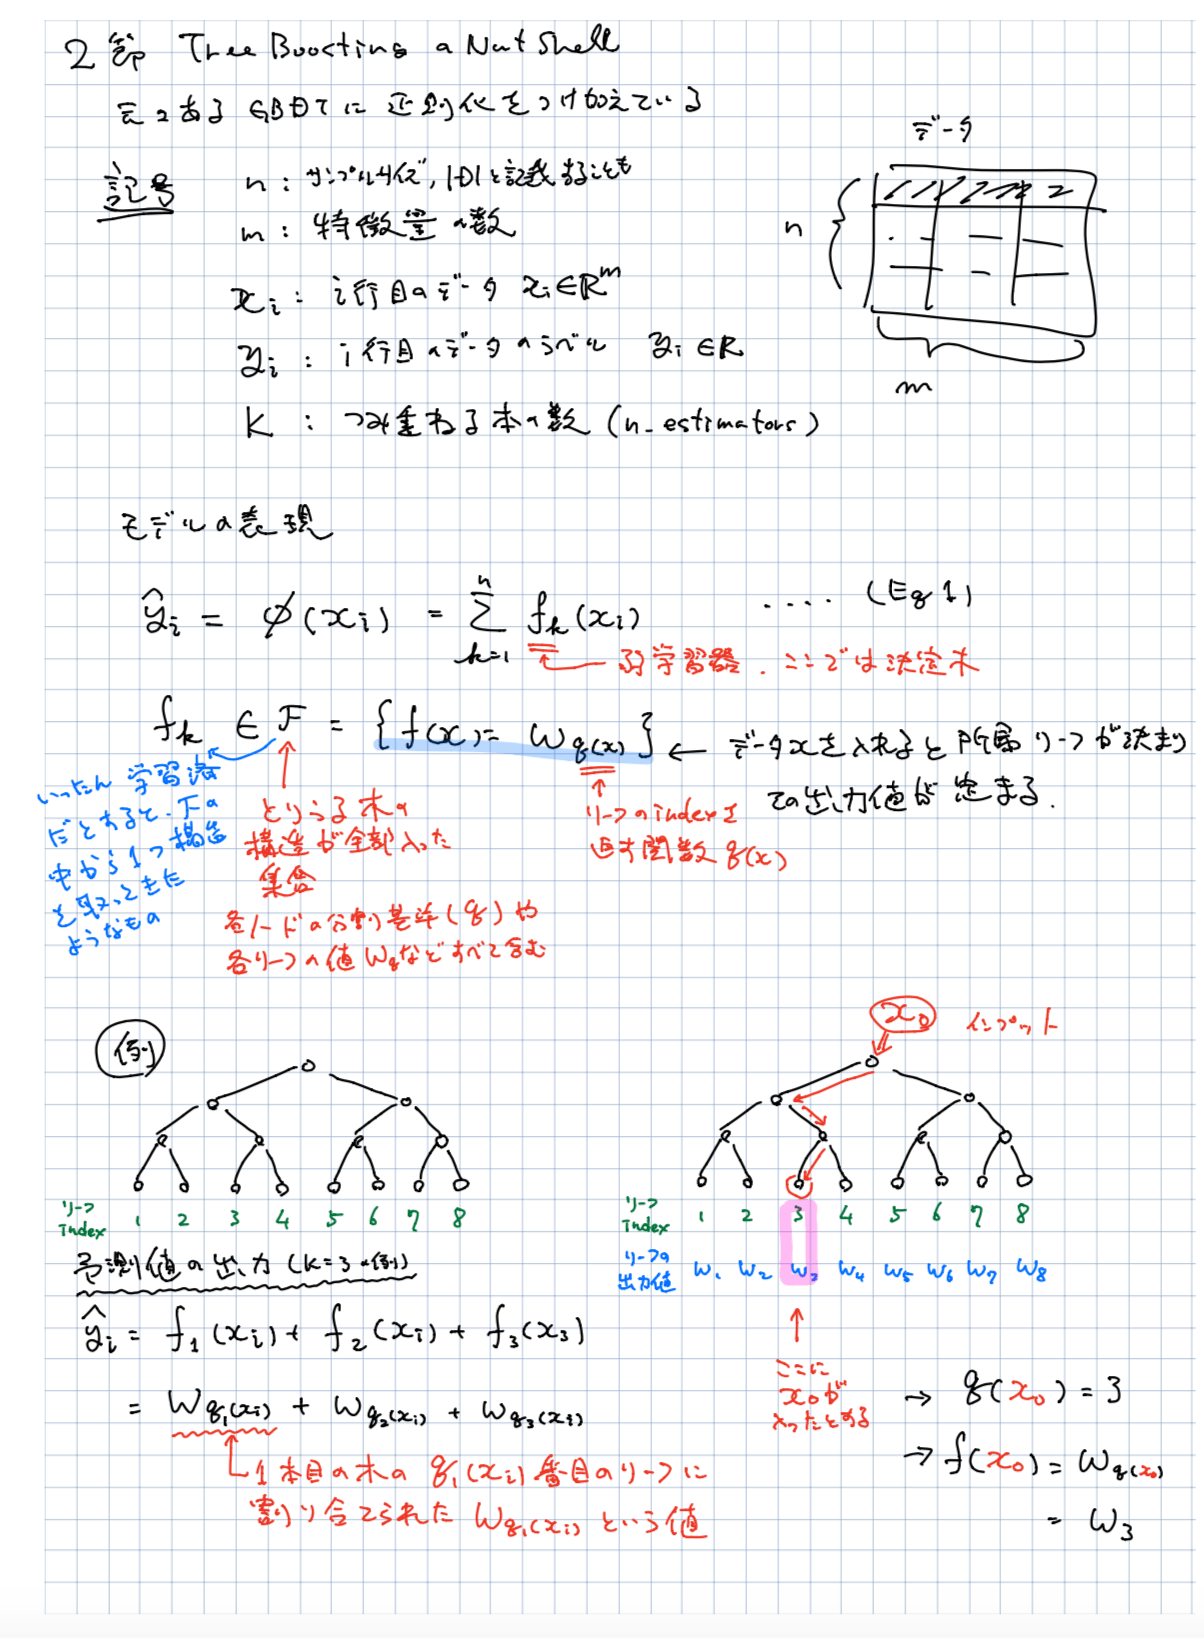 2節 Tree Boosting a Nut Shell
元々ある GBDTに 正則化をつけ加えている
記号
n : サンプルサイズ, |D|と記載することも
m : 特徴量の数
x_i : i行目のデータ x_i ∈ R^m
y_i : i行目のデータのラベル y_i ∈ R
K : つみ重ねる木の数 (n_estimators)
データ
n
m
モデルの表現
ŷ_i = φ(x_i) = Σ_{k=1}^{n} f_k(x_i) .... (Eq 1)
弱学習器. ここでは決定木
f_k ∈ F = {f(x) = w_{q(x)}} ← データxを入れると所属リーフが決まり
その出力値が定まる.
いったん 学習済
だとすると、Fの
中から1つ構造
を取ってきた
ようなもの
とりうる木の
構造が全部入った
集合
各ノードの分割基準(q)や
各リーフの値 w_qなどすべて含む
リーフのindexを
返す関数 q(x)
例
リーフ
index 1 2 3 4 5 6 7 8
x_0 インプット
リーフ
index 1 2 3 4 5 6 7 8
リーフの
出力値 w_1 w_2 w_3 w_4 w_5 w_6 w_7 w_8
ここに
x_0が
入ったとする
→ q(x_0) = 3
→ f(x_0) = w_{q(x_0)}
= w_3
予測値の出力 (k=3の例)
ŷ_i = f_1(x_i) + f_2(x_i) + f_3(x_3)
= w_{q_1(x_i)} + w_{q_2(x_i)} + w_{q_3(x_i)}
1本目の木の q_1(x_i)番目のリーフに
割り当てられた w_{q_1(x_i)} という値